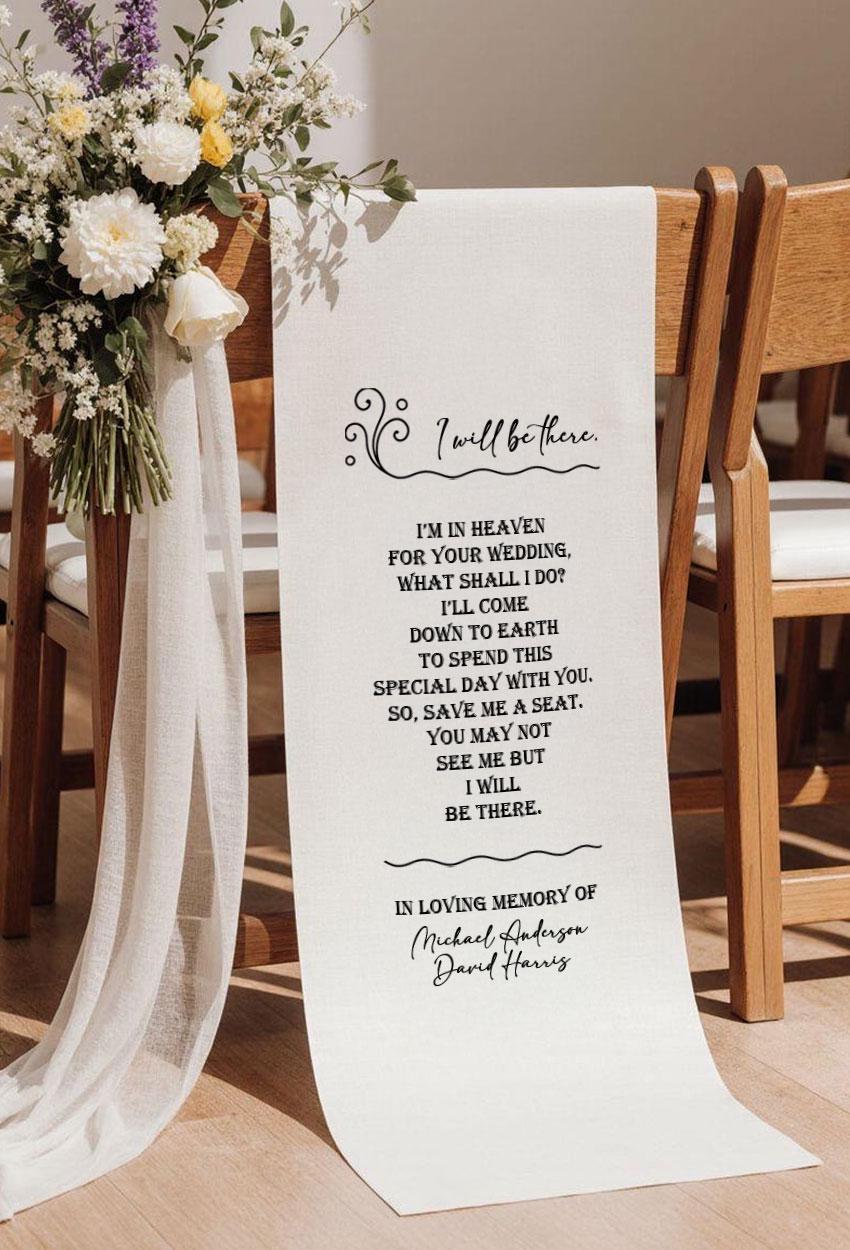 I will be there.
I'M IN HEAVEN
FOR YOUR WEDDING,
WHAT SHALL I DO?
I'LL COME
DOWN TO EARTH
TO SPEND THIS
SPECIAL DAY WITH YOU.
SO, SAVE ME A SEAT.
YOU MAY NOT
SEE ME BUT
I WILL
BE THERE.
IN LOVING MEMORY OF
Michael Anderson
David Harris